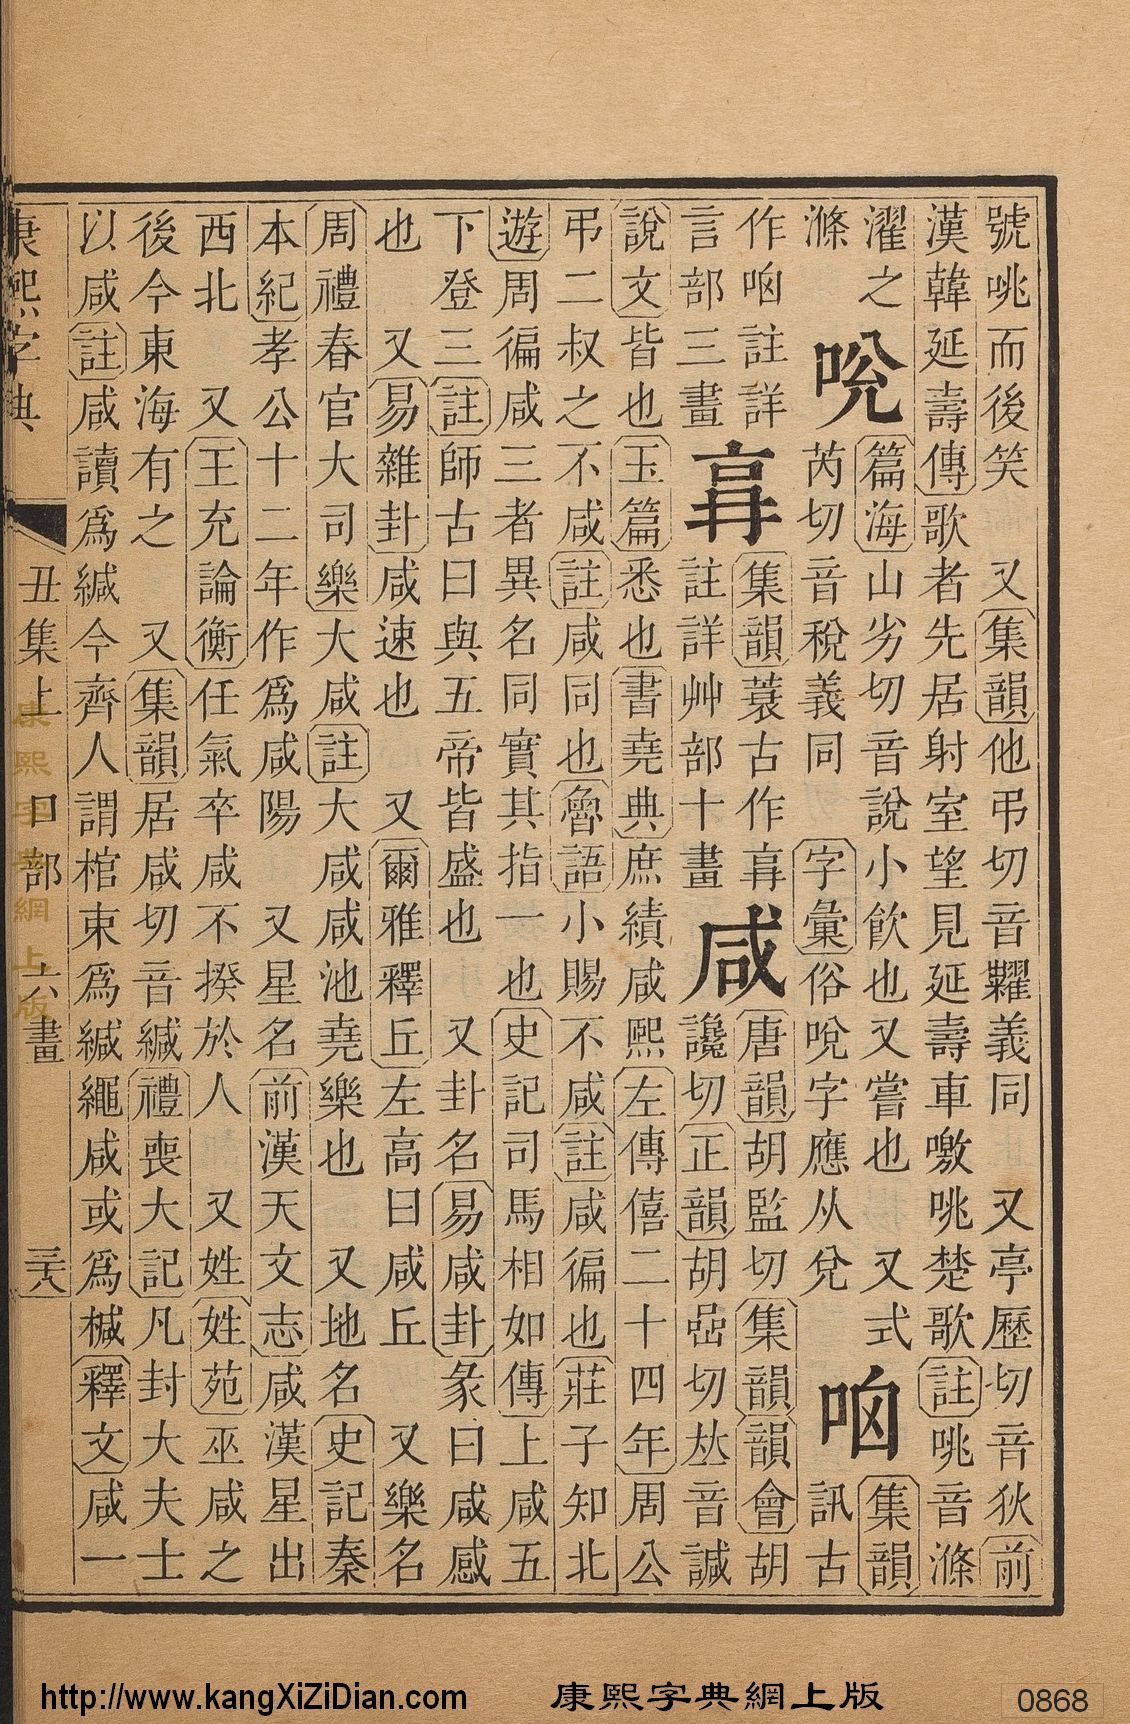 號咷而後笑　又集韻他弔切音糶義同　又亭歷切音狄前
漢韓延壽傳歌者先居射室望見延壽車噭咷楚歌註咷音滌
濯之
滌
哾
篇海山劣切音說小飮也又嘗也　又式
芮切音稅義同　字彙俗哾字應从兌
㕼
集韻
訊古
作㕼註詳
言部三畫
𠷎
集韻蓑古作𠷎
註詳艸部十畫
咸
唐韻胡監切集韻韻會胡
讒切正韻胡嵒切𠀤音諴
說文皆也玉篇悉也書堯典庶績咸熙左傳僖二十四年周公
弔二叔之不咸註咸同也魯語小賜不咸註咸徧也莊子知北
遊周徧咸三者異名同實其指一也史記司馬相如傳上咸五
下登三註師古曰與五帝皆盛也　又卦名易咸卦彖曰咸感
也　又易雜卦咸速也　又爾雅釋丘左高曰咸丘　又樂名
周禮春官大司樂大咸註大咸咸池堯樂也　又地名史記秦
本紀孝公十二年作爲咸陽　又星名前漢天文志咸漢星出
西北　又王充論衡任氣卒咸不揆於人　又姓姓苑巫咸之
後今東海有之　又集韻居咸切音緘禮喪大記凡封大夫士
以咸註咸讀爲緘今齊人謂棺束爲緘繩咸或爲椷釋文咸一
康熙字典　丑集上　口部　六畫　三十八
康熙字典網上版
http://www.kangXiZiDian.com　康熙字典網上版　0868